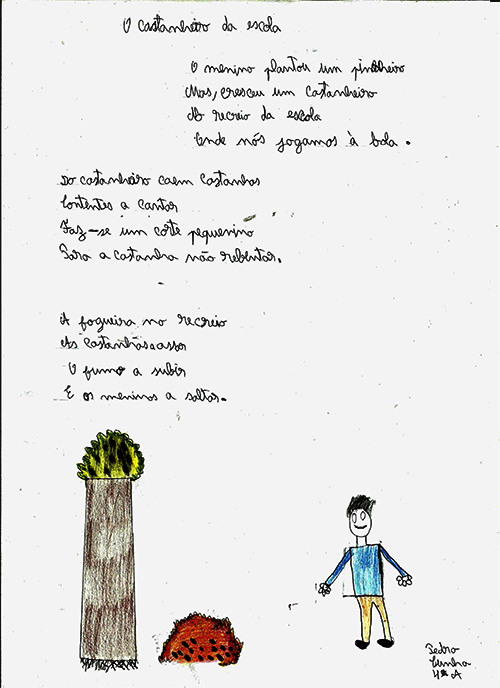 O castanheiro da escola
O menino plantou um pinheiro
Mas, cresceu um castanheiro
No recreio da escola
Onde nós jogamos à bola.
Do castanheiro caem castanhas
Contentes a cantar
Faz-se um corte pequenino
Para a castanha não rebentar.
A fogueira no recreio
As castanhas a assar
O fumo a subir
E os meninos a saltar.
Pedro
Cunha
4º A